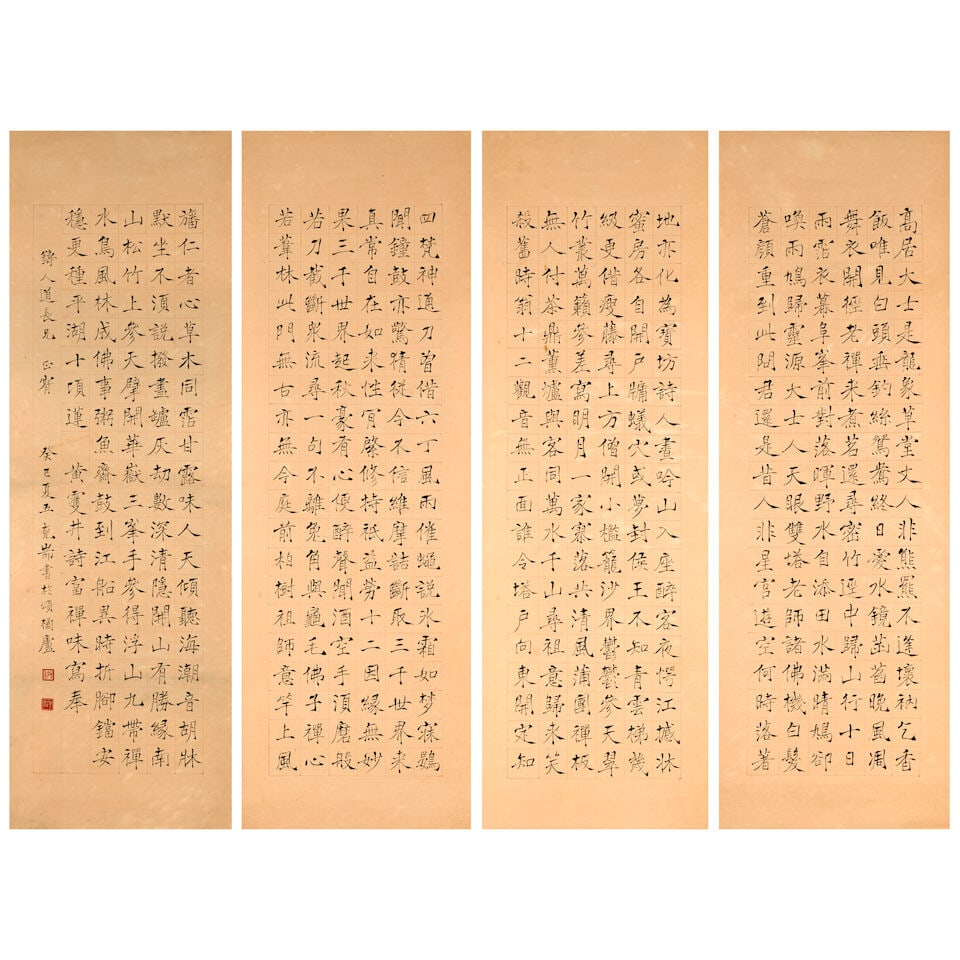 高居大士是龍象草堂丈人非熊羆不逢壞衲乞香
飯唯見白頭垂釣絲鴛鴦終日愛水鏡菡萏晚風凋
舞衣開徑老禪来煮茗還尋密竹逕中歸山行十日
雨霑衣幕阜峯前對落暉野水自添田水滿晴鳩卻
喚雨鳩歸靈源大士人天眼雙塔老師諸佛機白髮
蒼顏重到此問君還是昔人非星宮遊空何時落著
地亦化為寶坊詩人晝吟山入座醉客夜愕江撼牀
蜜房各自開户牖蟻穴或夢封侯王不知青雲梯幾
級更借瘦藤尋上方僧開小檻籠沙界鬱鬱參天翠
竹叢萬籟參差寫明月一家寥落共清風蒲團禪板
無人付茶鼎薰爐與客同萬水千山尋祖意歸来笑
殺舊時翁十二觀音無正面誰令塔户向東開定知
四梵神通力曾借六丁風雨催蠅說氷霜如夢寐鷃
聞鐘鼓亦驚猜從今不信維摩詰斷取三千世界来
真常自在如来性肎綮修持祇益勞十二因緣無妙
果三千世界起秋豪有心便醉聲聞酒空手須磨般
若刀截斷衆流尋一句不離兔角與龜毛佛子禪心
若葦林此門無古亦無今庭前柏樹祖師意竿上風
旛仁者心草木同霑甘露味人天傾聽海潮音胡牀
默坐不須說撥盡罏灰劫數深清隱開山有勝緣南
山松竹上參天擘開華嶽三峯手參得浮山九帶禪
水鳥風林成佛事粥魚齋鼓到江船異時折腳鐺安
穩更種平湖十頃蓮 黃雙井詩富禪味寫奉
鑄人道長兄 正賞 癸巳夏五克耑書於頌橘廬